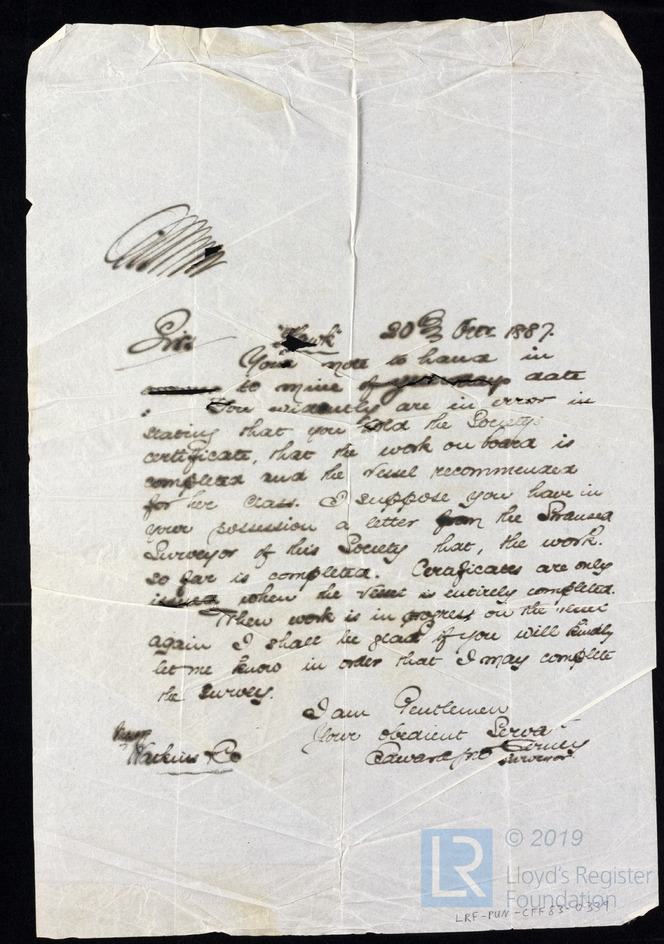 Sirs "Hawk" 20th Octr 1887.
Your note to hand in
to mine of yesterdays date
You evidently are in error in
stating that you hold the Societys
certificate, that the work on board is
completed and the vessel recommended
for her class. I suppose you have in
your possession a letter from the Swansea
Surveyor of this Society that, the work
so far is completed. Certificates are only
issued when the vessel is entirely completed.
When work is in progress on the vessel
again I shall be glad if you will kindly
let me know in order that I may complete
the survey.
I am Gentlemen
Your obedient Servt
Edward Jno
Surveyor
Messrs
Watkins & Co
© 2019
LR
Lloyd's Register
Foundation
LRF-PUN-CFF83-0339